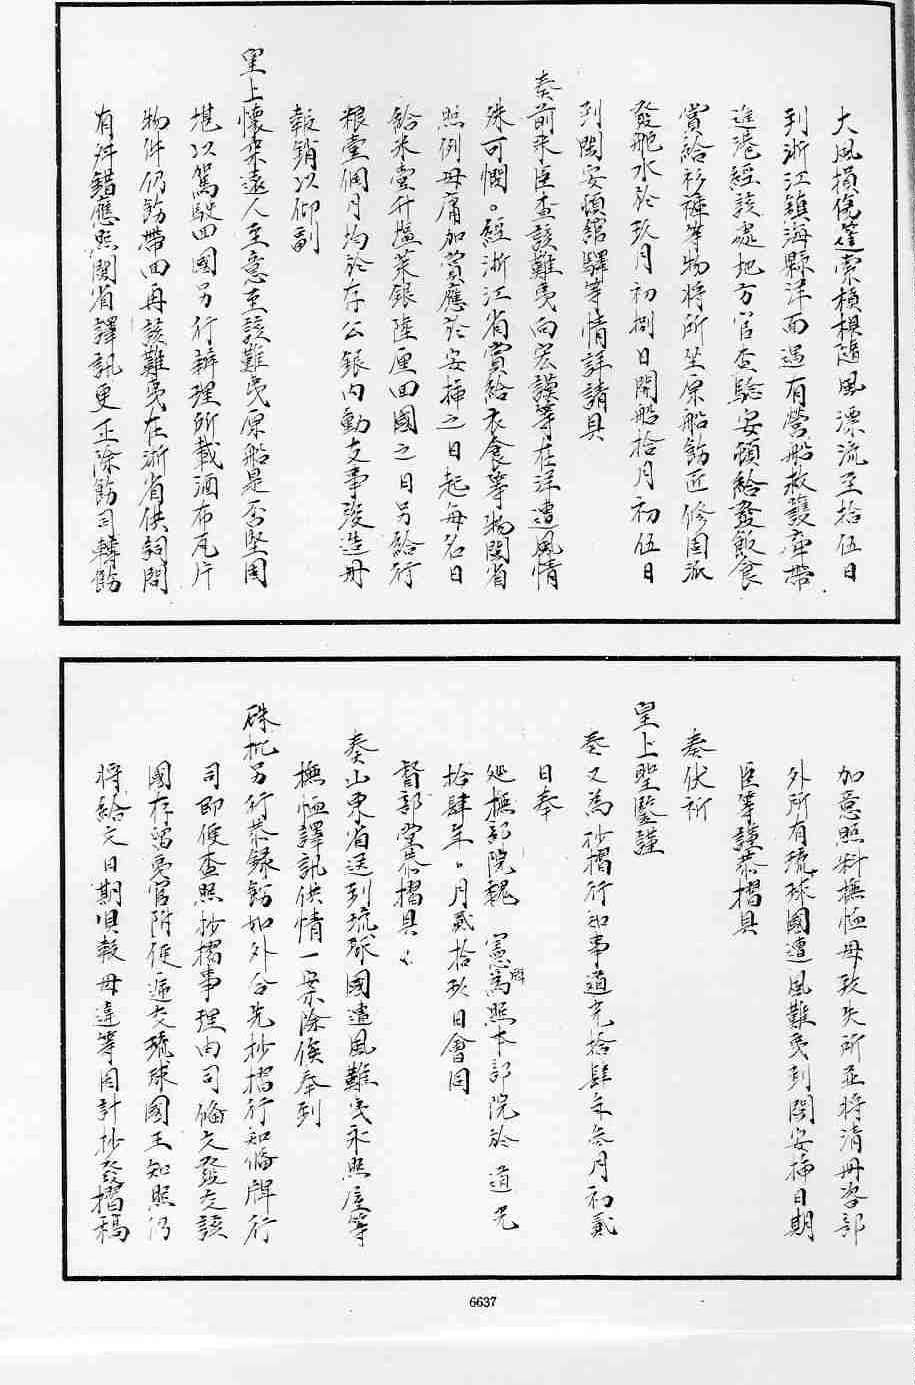 大風損傷篷索槓椇隨風漂流至拾伍日
到浙江鎮海縣洋面遇有營船救護牽帶
進港經該處地方官查驗安頓給發飯食
賞給衫褲等物將所坐原船飭匠修固派
發舵水於玖月初捌日開船拾月初伍日
到閩安頓館驛等情詳請具
奏前來臣查該難夷向宏謨等在洋遭風情
殊可憫。經浙江省賞給衣食等物閩省
照例毋庸加賞應於安插之日起每名日
給米壹升塩菜銀陸厘回國之日另給行
粮壹個月均於存公銀內動支事竣造册
報銷以仰副
皇上懷柔遠人至意至該難夷原船是否堅固
堪以駕駛回國另行辦理所載酒布瓦片
物件仍飭帶回再該難夷在浙省供詞間
有舛錯應照閩省譯訊更正除飭司轉飭
加意照料撫恤毋致失所並將清册咨部
外所有琉球國遭風難夷到閩安插日期
臣等謹恭摺具
奏伏祈
皇上聖鑒謹
奏又為抄摺行知事道光拾肆年叁月初貳
日奉
廵撫部院魏 憲牌為照本部院於道光
拾肆年〻月貳拾玖日會同
督部堂恭摺具〻
奏山東省送到琉球國遭風難夷永照屋等
撫恤譯訊供情一案除俟奉到
硃批另行恭録飭知外合先抄摺行知偹牌行
司即便查照抄摺事理由司偹文發交該
國存留夷官附便遞交琉球國王知照仍
將給文日期具報毋違等因計抄發摺稿
6637